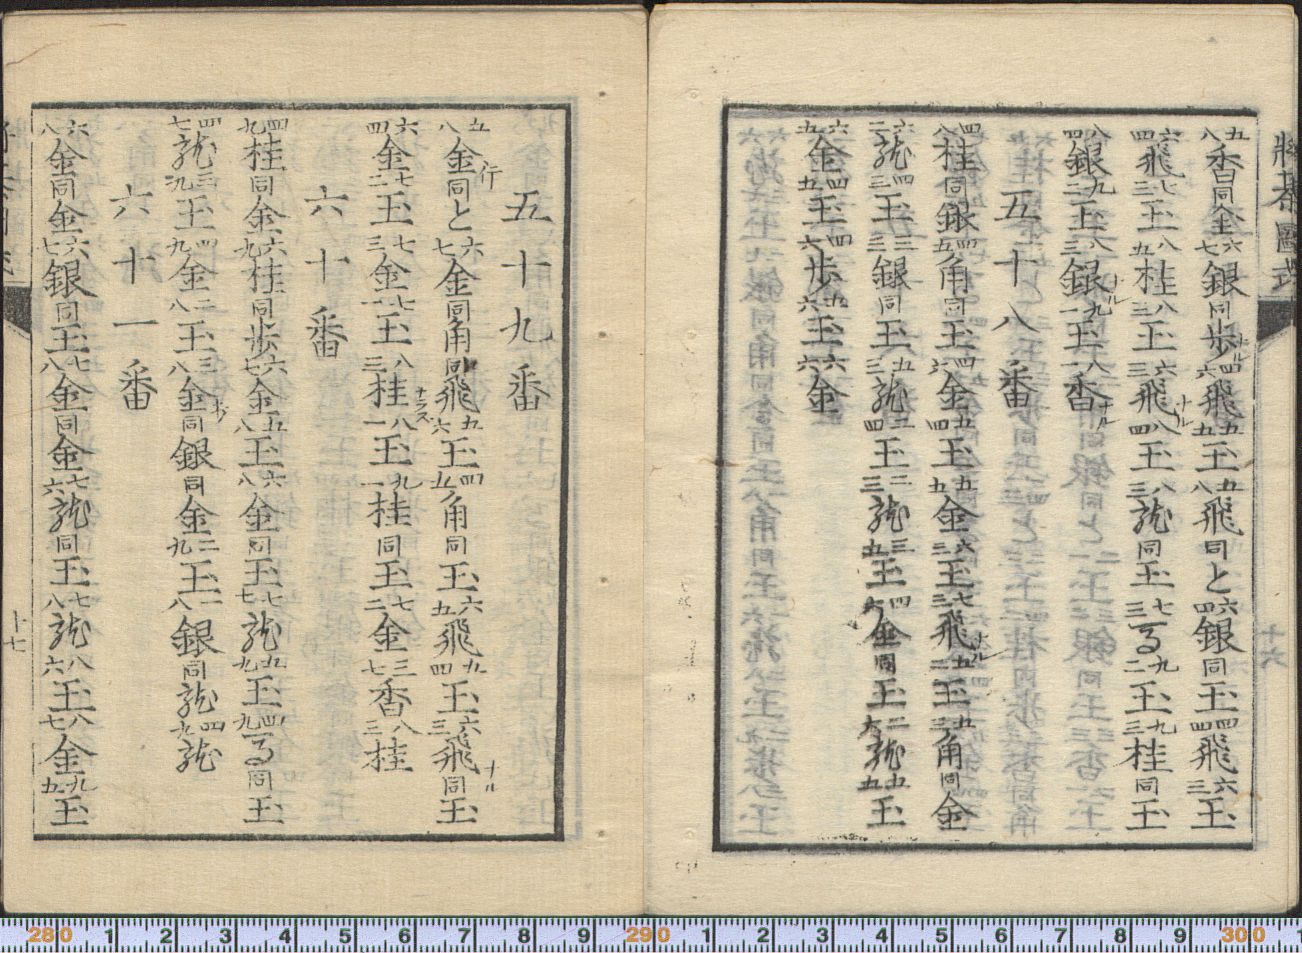 將棊圖式
五八香同金六七銀同歩四六飛ナル五五王五八飛同と六四銀同王四四飛六三王
六四飛七三王八五桂八三王六三飛ナル八四王八三龍同王七三る九二王九三桂同王
八四銀九二王八三銀ナル九一王八一香ナル
五十八番
四八桂同銀四五角同王四六金五四王五五金六三王七三飛ナル五二王五三角同金
六二龍四三王三三銀同王五三龍二四王二三龍三五王四五金同王二六龍五五王
六五金四五王四六歩五六王六六金
十六
五十九番
五八金行同と六七金同角同飛九六王四五角同王六五飛九四王六三飛ナル同王
六四金七二王七三金七一王八三桂ナラス八一王九一桂同王七二金三七香八三桂
六十番
四九桂同金六九桂同歩六七金五八王六八金同王七七龍五九王四九る同王
四七龍三九王四九金二八王三八金ヨル同銀同金二九王一八銀同龍四九龍
六十一番
六八金同金六七銀同王七八金同金七六龍同王七八龍八六王八七金九五王
十七